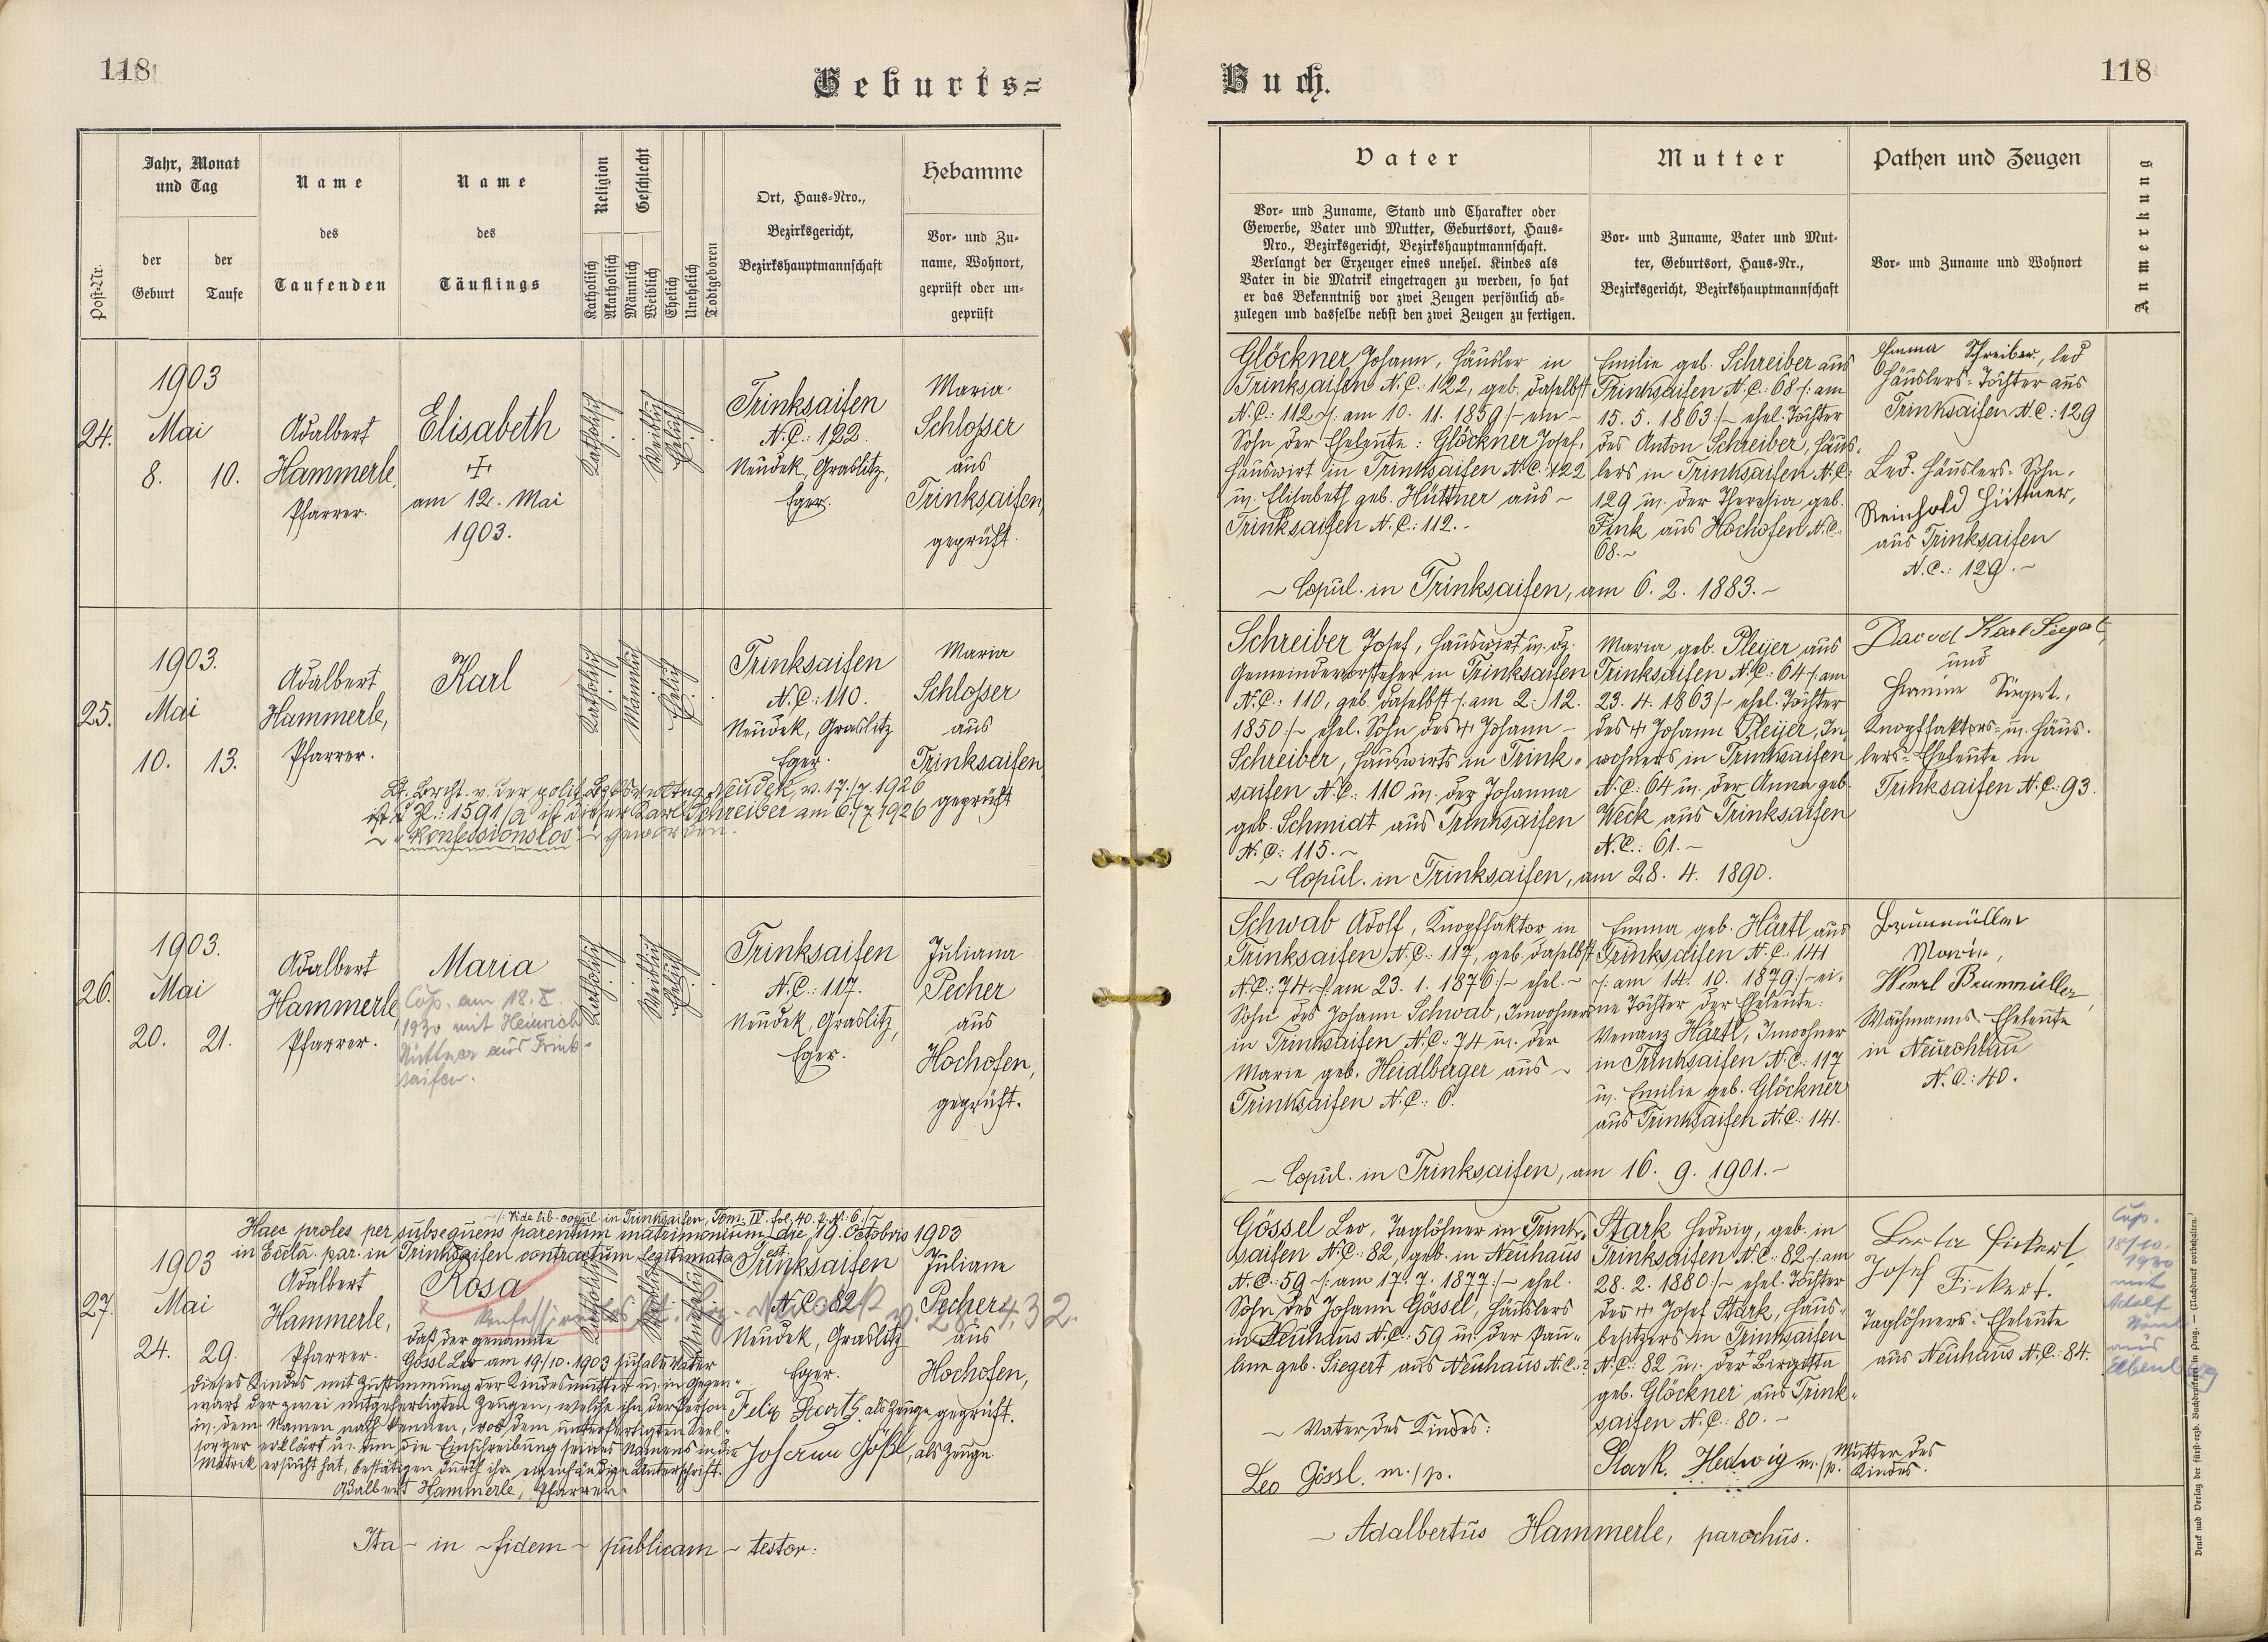 118
Geburts=
Post-Nr.
Jahr, Monat
und Tag
der
Geburt
der
Taufe
Name
des
Taufenden
Name
des
Täuflings
Religion
Katholisch
Akatholisch
Geschlecht
Männlich
Weiblich
Ehelich
Unehelich
Todtgeboren
Ort, Haus=Nro.,
Bezirksgericht,
Bezirkshauptmannschaft
Hebamme
Vor= und Zu=
name, Wohnort,
geprüft oder un=
geprüft
24.
1903
Mai
8. 10.
Adalbert
Hammerle,
Pfarrer.
Elisabeth
am 12. Mai
1903.
Katholisch
Weiblich
Ehelich
Trinksaifen
N.C.: 122.
Neudek, Graslitz,
Eger.
Maria
Schlosser
aus
Trinksaifen,
geprüft.
25.
1903.
Mai
10. 13.
Adalbert
Hammerle,
Pfarrer.
Karl
Katholisch
Männlich
Ehelich
Trinksaifen
N.C.: 110.
Neudek, Graslitz
Eger.
Maria
Schlosser
aus
Trinksaifen
geprüft
Neudek, v. 17./7. 1926
1591/a ist dieser Karl Schreiber am 6./7 1926
"konfessionslos" geworden.
26.
1903.
Mai
20. 21.
Adalbert
Hammerle,
Pfarrer.
Maria
Cop. am 18. X.
1930 mit Heinrich
Hüttner aus Trink-
saifen.
Katholisch
Weiblich
Ehelich
Trinksaifen
N.C.: 117.
Neudek, Graslitz,
Eger.
Juliana
Pecher
aus
Hochofen,
geprüft.
Vide lib. copul in Trinksaifen, Tom. IV. fol. 40.
Haec proles per subsequens parentum matrimonium die 19. Octobris 1903
in Eccla. par. in Trinksaifen contractum legitimata est.
27.
1903
Mai
24. 29.
Adalbert
Hammerle,
Pfarrer.
Rosa
Katholisch
Weiblich
Unehelich
Trinksaifen
N.C. 82
Neudek, Graslitz
Eger.
Juliane
Pecher
aus
Hochofen,
geprüft.
daß der genannte
Gössl Leo am 19./10. 1903 sich als Vater
dieses Kindes mit Zustimmung der Kindesmutter u. in Gegen=
wart der zwei mitgefertigten Zeugen, welche ihn der Person
u. dem Namen nach kennen, vor dem unterfertigten Seel=
sorger erklärt u. um die Einschreibung seines Namens in die
Matrik ersucht hat, bestätigen durch ihre eigenhändige Unterschrift.
Adalbert Hammerle, Pfarrer.
als Zeuge
Johann Gößl, als Zeuge
Ita - in - fidem - publicam - testor:
Buch.
118
Vater
Vor= und Zuname, Stand und Charakter oder
Gewerbe, Vater und Mutter, Geburtsort, Haus=
Nro., Bezirksgericht, Bezirkshauptmannschaft.
Verlangt der Erzeuger eines unehel. Kindes als
Vater in die Matrik eingetragen zu werden, so hat
er das Bekenntniß vor zwei Zeugen persönlich ab=
zulegen und dasselbe nebst den zwei Zeugen zu fertigen.
Mutter
Vor= und Zuname, Vater und Mut=
ter, Geburtsort, Haus=Nr.,
Bezirksgericht, Bezirkshauptmannschaft
Pathen und Zeugen
Vor= und Zuname und Wohnort
Anmerkung
Glöckner Johann, Häusler in
Trinksaifen N.C.: 122, geb. daselbst
N.C.: 112 /: am 10. 11. 1859 :/ - ein -
Sohn der Eheleute: Glöckner Josef,
Hauswirt in Trinksaifen N.C.: 122
u. Elisabeth geb. Hüttner aus -
Trinksaifen N.C.: 112. -
Emilie geb. Schreiber aus
Trinksaifen N.C.: 68 /: am
15. 5. 1863 :/ - ehel. Tochter
des Anton Schreiber, Häus=
lers in Trinksaifen N.C.:
129 u. der Theresia geb.
Fink aus Hochofen N.C.:
68. -
Emma Schreiber, led
Häuslers=Tochter aus
Trinksaifen N.C.: 129
Led. Häuslers=Sohn,
Reinhold Hüttner,
aus Trinksaifen
N.C.: 129. -
- Copul. in Trinksaifen, am 6. 2. 1883. -
Schreiber Josef, Hauswirt u. dz.
Gemeindevorsteher in Trinksaifen
N.C.: 110, geb. daselbst /: am 2. 12.
1850 :/ - ehel. Sohn des + Johann -
Schreiber, Hauswirts in Trink=
saifen N.C.: 110 u. der Johanna
geb. Schmidt aus Trinksaifen
N.C.: 115. -
Maria geb. Pleijer aus
Trinksaifen N.C.: 64 /: am
23. 4. 1863 :/ - ehel. Tochter
des + Johann Pleijer, In=
wohners in Trinksaifen
N.C.: 64 u. der Anna geb.
Weck aus Trinksaifen
N.C.: 61. -
Karl Siegert,
und
Hermine Siegert,
Knopffaktors= u. Häus=
lers=Eheleute in
Trinksaifen N.C.: 93.
- Copul. in Trinksaifen, am 28. 4. 1890.
Schwab Adolf, Knopffaktor in
Trinksaifen N.C.: 117, geb. daselbst
N.C.: 74 /: am 23. 1. 1876 :/ - ehel. -
Sohn des Johann Schwab, Inwohners
in Trinksaifen N.C.: 74 u. der
Marie geb. Heidlberger aus -
Trinksaifen N.C.: 6.
Emma geb. Härtl aus
Trinksaifen N.C.: 141
/: am 14. 10. 1879 :/ - ei=
ne Tochter der Eheleute:
Venanz Härtl, Inwohner
in Trinksaifen N.C.: 117
u. Emilie geb. Glöckner
aus Trinksaifen N.C.: 141.
Braunmüller
Marie,
Braunmüller,
Wachmanns-Eheleute
in Neurohlau
N.C.: 40.
- Copul. in Trinksaifen, am 16. 9. 1901. -
Gössel Leo, Taglöhner in Trink=
saifen N.C.: 82, geb. in Neuhaus
N.C.: 59 /: am 17. 7. 1877 :/ - ehel.
Sohn des Johann Gössel, Häuslers
in Neuhaus N.C.: 59 u. der Pau=
line geb. Siegert aus Neuhaus N.C.: 2
- Vater des Kindes:
Leo Gössl. m./p.
Stark Hedwig, geb. in
Trinksaifen N.C.: 82 /: am
28. 2. 1880 :/ - ehel. Tochter
des + Josef Stark, Haus=
besitzers in Trinksaifen
N.C.: 82 u. der + Birgitta
geb. Glöckner aus Trink=
saifen N.C.: 80. -
Stark Hedwig m./p. Mutter des
Kindes.
Berta Fickert,
Josef Fickert.
Taglöhners=Eheleute
aus Neuhaus N.C.: 84.
Cop.
18/10.
1930
mit
Adolf
aus
- Adalbertus Hammerle, parochus.
Druck und Verlag der fürst=erzb. Buchdruckerei in Prag. — (Nachdruck vorbehalten.)